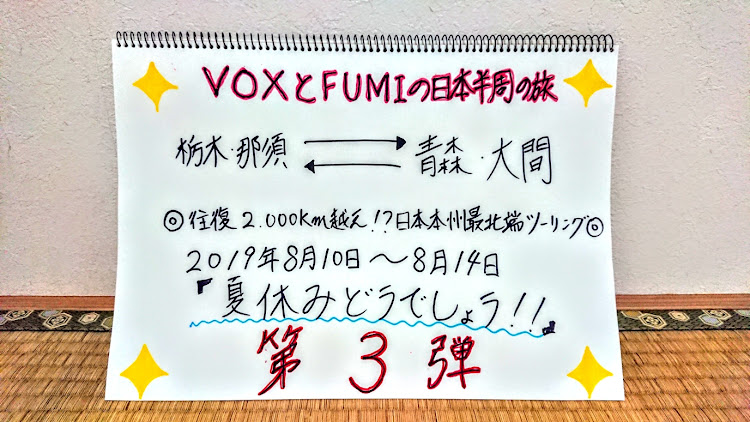 VOXとFUMIの日本半周の旅
栃木・那須 ⟷ 青森・大間
◎往復2.000Km越え!?日本本州最北端ツーリング◎
2019年8月10日〜8月14日
『夏休みどうでしょう!!』
第3弾